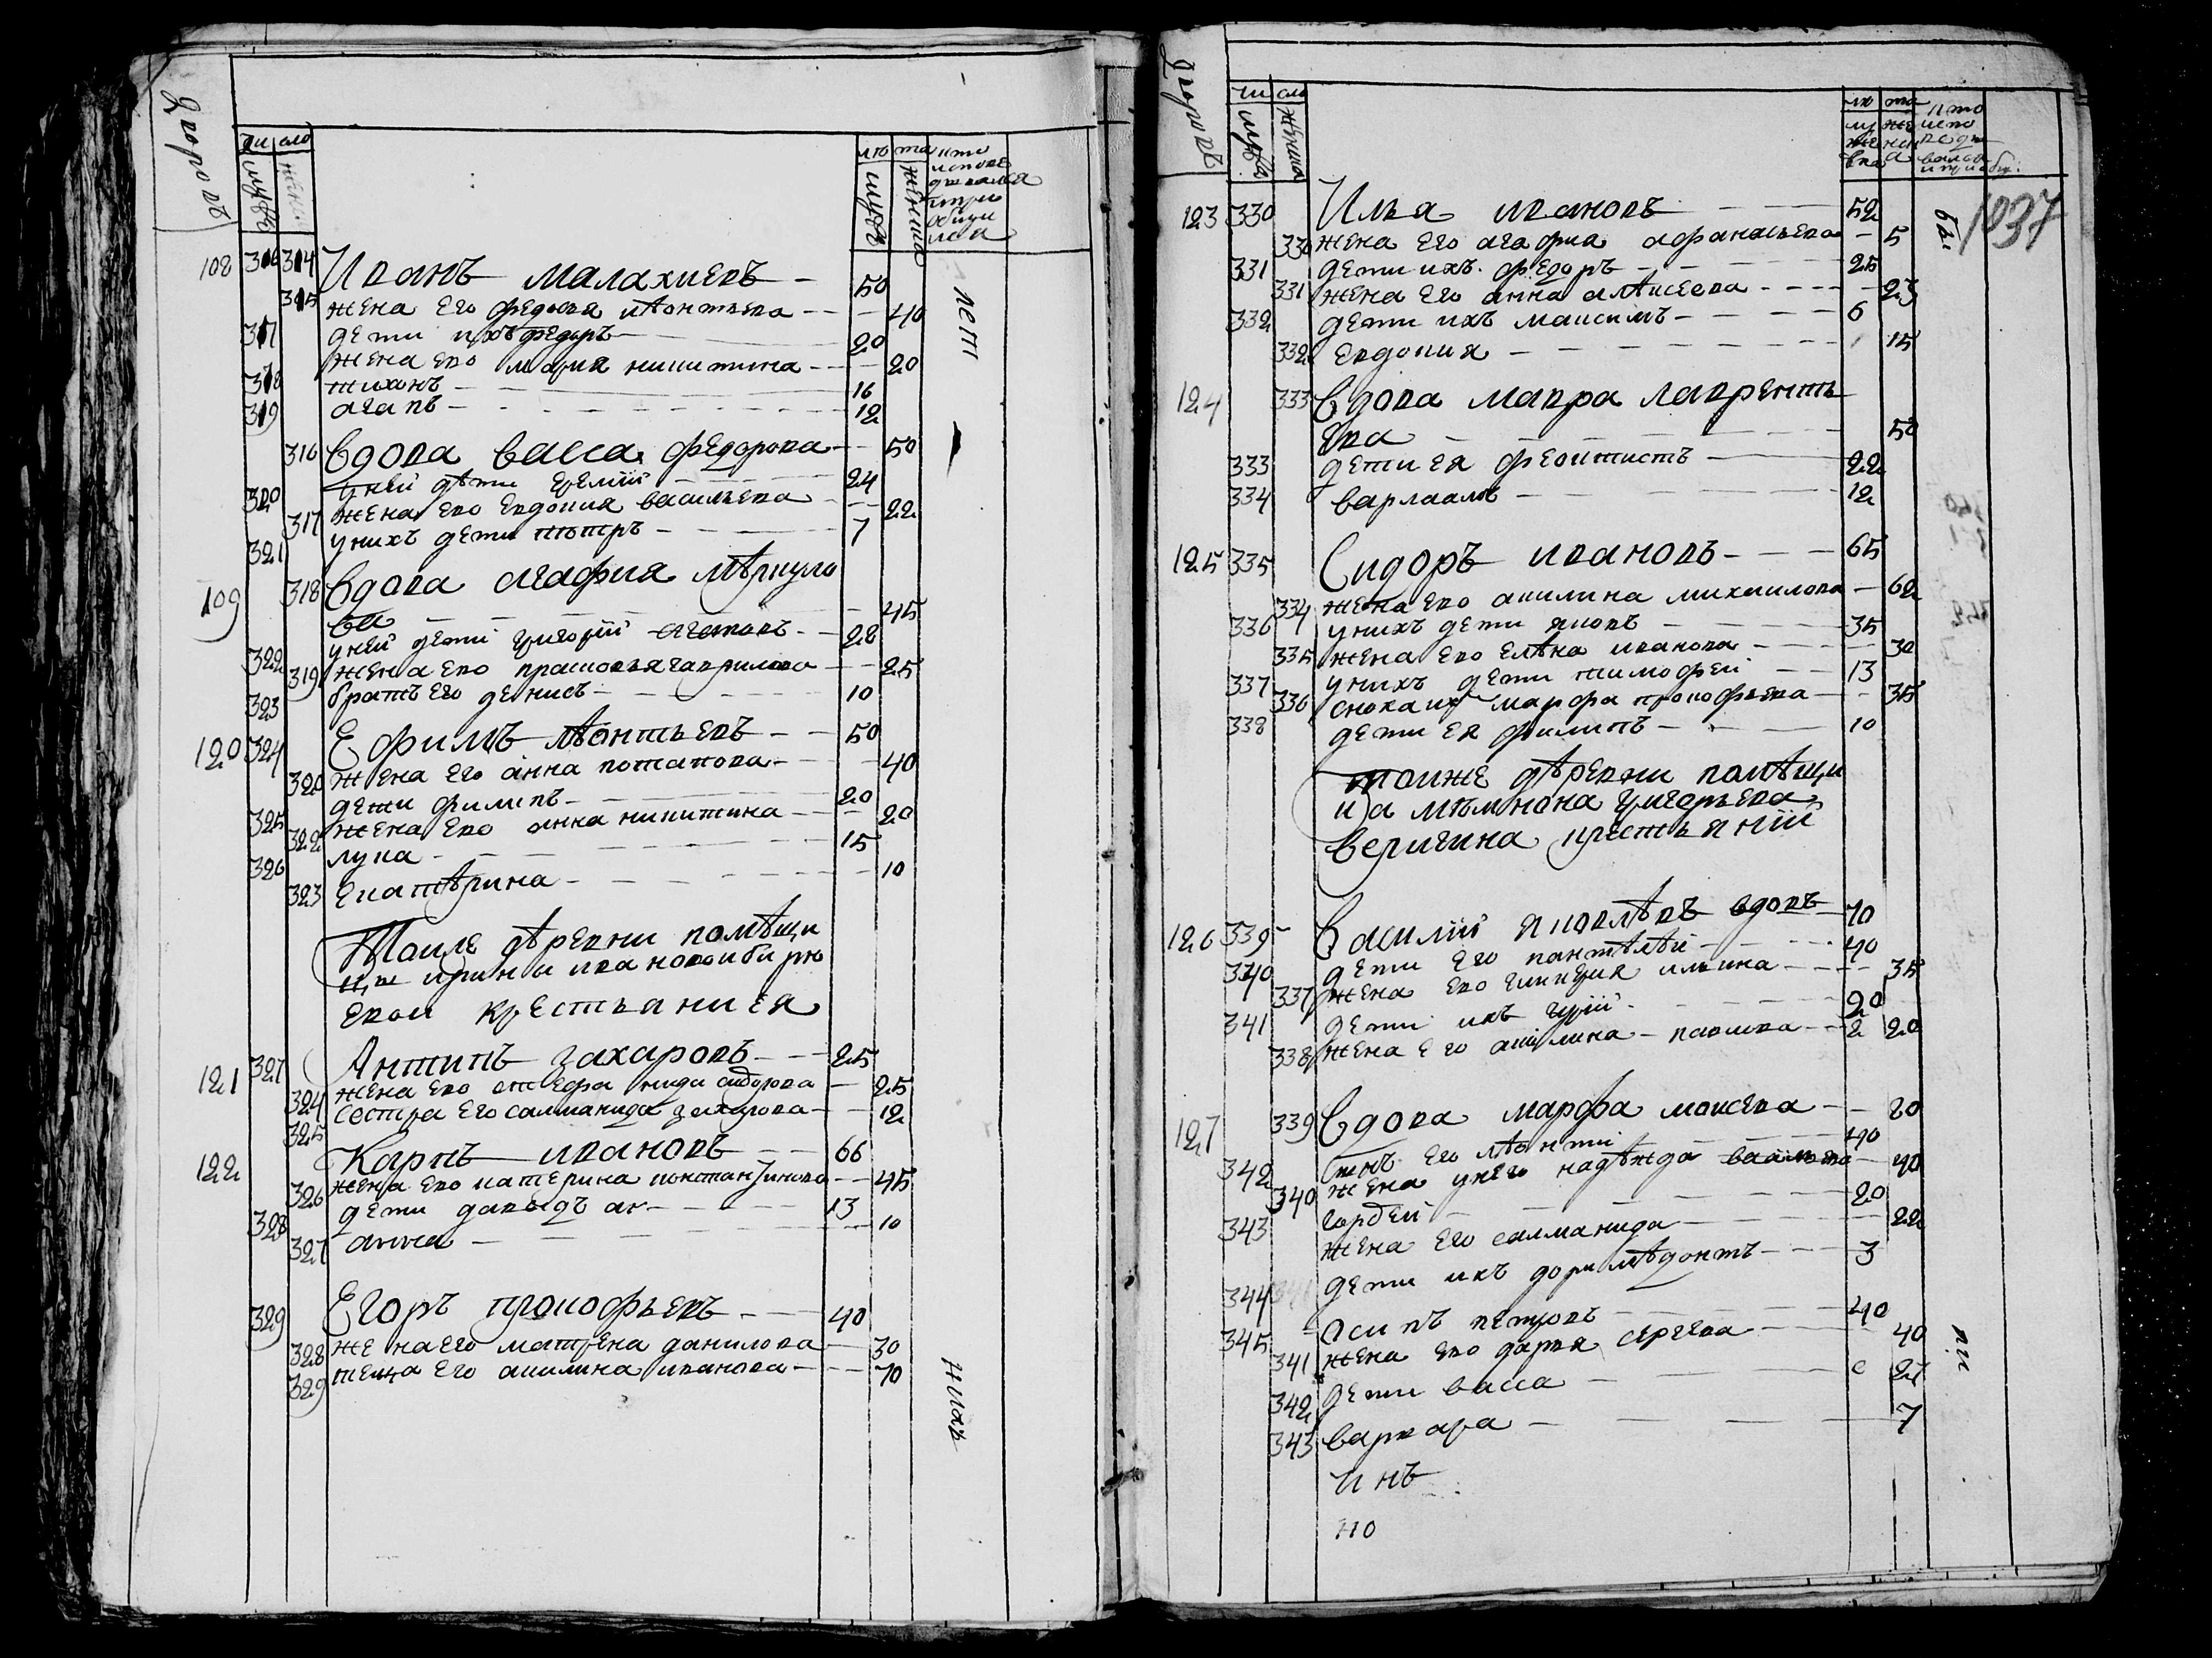 дворовъ
число
мужъ
женъ
лѣта
мужъ
женшко
кто исповедывался и приобщился
108 316 314 Иванъ малахиевъ — 50
315 жена его федосья лѣонтьева — 40
317 дети ихъ федоръ — 20
жена ево мария никитина — 20
318 тихонъ — 16
319 агапъ — 12
316 вдова васса федорова — 50
320 у ней дѣти еремѣй — 24
317 жена ево евдокия васильева — 22
321 у нихъ дети пѣтръ — 7
109 318 вдова агафия мѣркуло
ва — 45
322 у ней дети григорий агаповъ — 28
319 жена ево прасковья гаврилова — 25
323 братъ его денисъ — 10
120 324 Ефимъ лѣонтьевъ — 50
320 жена его анна потапова — 40
325 дети филипъ — 20
322 жена ево анна никитина — 20
326 лука — 15
323 екатѣрина — 10
Тоиле дѣревни помѣщи
цы ирины ивановои бирю
евои крестьаниея
121 327 Антипъ захаровъ — 25
324 жена ево стефанида сидорова — 25
325 сестра его саламанида захарова — 12
122 Карпъ ивановъ — 66
326 жена ево катерина константинова — 45
328 дети давыдъ — 13
327 анна — 10
329 Егоръ прокофьевъ — 40
328 жена его матрена данилова — 30
329 теща его акилина иванова — 70
лет
дворовъ
число
мужъ
женшко
лѣта
1037
бы
123 330 Илья ивановъ — 52
330 жена его агафия афанасьева — 5
331 дети ихъ федоръ — 25
331 жена его анна алѣксеева — 23
332 дети ихъ максимъ — 6
332 евдокия — 15
124 333 вдова мавра лаврентье
ева — 50
333 дети ея феоктистъ — 22
334 варлаамъ — 12
125 335 Сидоръ ивановъ — 65
334 жена ево акилина михаилова — 62
336 у нихъ дети яковъ — 35
335 жена ево елѣна иванова — 30
337 у нихъ дети тимофей — 13
336 сноха их марфа прокофьева — 35
338 дети ея филипъ — 10
тоиже дѣревни помѣщи
ка мѣмнона григорьева
веригина крестьянии
126 339 Василий яковлѣвъ вдовъ — 70
340 дети его пантѣлѣй — 40
337 жена ево гликерия ильина — 35
341 дети ихъ гурий — 20
338 жена его акилина павлова — 2 20
127 339 Вдова марфа моисева — 80
342 сынъ его лѣонтий — 40
340 жена у него надѣжда васильева — 40
343 гордей — 20
жена его саламанида — 22
344 341 дети ихъ доримѣдонтъ — 3
345 Осипъ петровъ — 40
341 жена ево дарья сергеева — 40
342 дети васса — 27
343 варвара — 7
и нъ
но